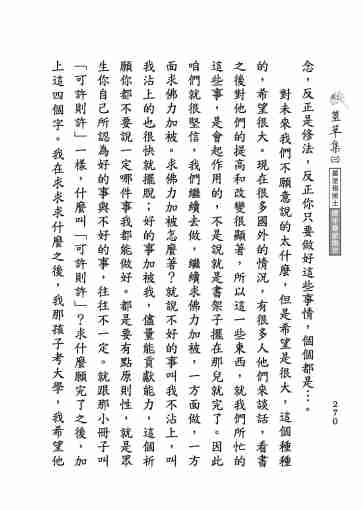 念，反正是修法，反正你只要做好這些事情，個個都是…。
對未來我們不願意說的太什麼，但是希望是很大，這個種種
的，希望很大。現在很多國外的情況，有很多人他們來談話，看書
之後對他們的提高和改變很顯著，所以這一些東西，就我們所忙的
這些事，是會起作用的，不是說就是書架子擺在那兒就完了。因此
咱們就很堅信。我們繼續去做，繼續求佛力加被，一方面做，一方
面求佛力加被。求佛力加被怎麼著？就說不好的事叫我不沾上，叫
我沾上的也很快就擺脫；好的事加被我，儘量能貢獻能力，這個祈
願你都不要說一定哪件事我都能做好。都是要有點原則性，就是眾
生你自己所認為好的事與不好的事，往往不一定。就跟那小冊子叫
「可許則許」一樣，什麼叫「可許則許」？求什麼願完了之後，加
上這四個字。我在求求求什麼之後，我那孩子考大學，我希望他
草集㈡
270